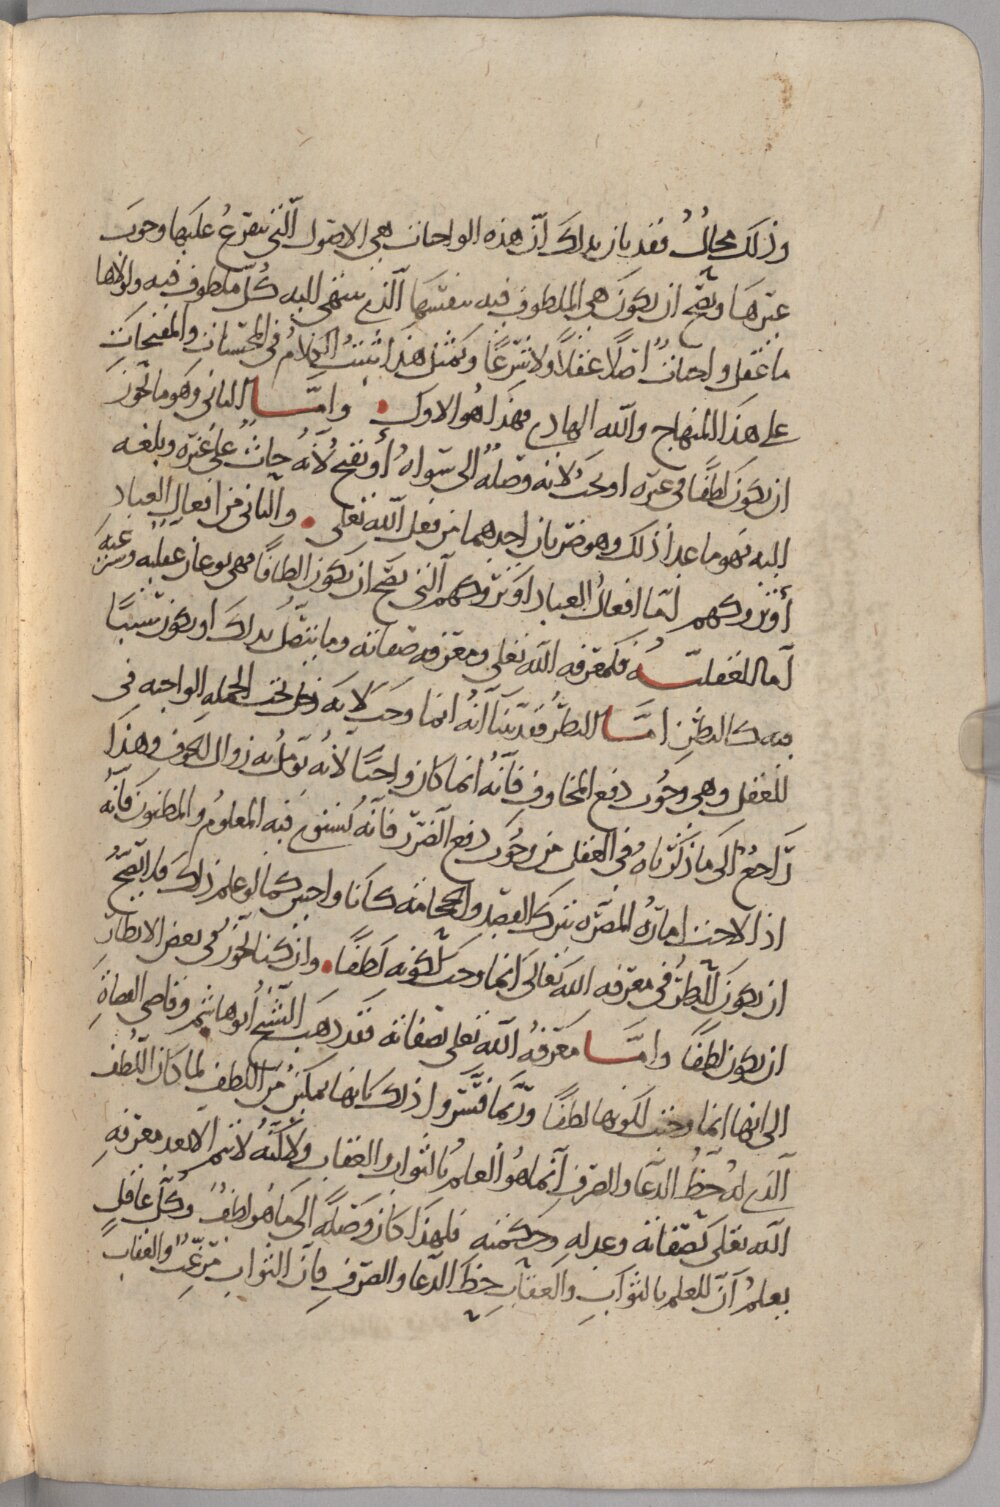 وذلك محالٌ فقد بان بذلك أنّ هذه الواجبات هي الاصول الّتي يتفرّع عليها وجوب
غيرها ويصحّ ان يكون هي الملطوف فيه بنفسها الّذي ينتهي اليه كُلّ ملطوف فيه ولولاها
ما عُقل واجباتٌ اصلًا عقلًا ولا شرعًا وبمثل هذا يثبت الكلامُ في المحسّنات والمقبّحات
على هذا المنهاج والله الهادي فهذا هو الاول وامّا الثاني وهو ما يجوز
ان يكون لطفًا في غيره او يجب لانه وصلةٌ الى سواهُ أو يقبح لأنّهُ باعثٌ على غيره
اليه فهو ما عدا ذلك وهو ضربان احدهما من فعل الله تعلى والثاني من افعال العباد
أو تروكهم امّا افعالُ العباد أو تروكهم الّتي يصحّ ان يكون الطافًا فهي نوعان عقليّه وشرعيّه
أمّا العقليّـــه فكمعرفه الله تعلى ومعرفه صفاته وما يتّصل بذلك او يكون سببًا
فيه كالنظر امّـــا النظرُ فقد بيّنّا انّهُ انما وجب لانه دخل تحت الجمله الواجبه في
العقل وهي وجُوب دفع المخاوف فانّهُ انما كان واجبًا لأنّهُ يؤمل به زوال الخوف وهذا
رَاجعٌ الى ما ذكرناهُ في العقل من وجُوب دفع الضرر فانّه يستوي فيه المعلوم والمظنون فانّه
اذا لاحت امارهُ المضرّه بترك الفصد والحجامه كانا واجبين كما لو علم ذلك فلا يصحّ
ان يكون النّظرُ في معرفه الله تعالى انما وجب لكونه لطفًا وان كنا نجوّز في بعض الانظار
ان يكون لطفًا وامّـــا معرفهُ الله تعلى بصفاته فقد ذهب الشيخ ابو هاشم وقاضي القضاةِ
الى انها انما وجبت لكونها لطفًا وربّما فسّروا ذلك بانها تمكينٌ من اللطف لما كان اللُّطف
الّذي لهُ حظُّ الدّعاء والصرف انّما هُو العلمُ بالثواب والعقاب ولكنّهُ لا يتم الا بعد معرفهِ
الله تعلى بصفاته وعدله وحكمته فلهذا كان وصلةً الى ما هُو لطفٌ وكُلّ عاقلٍ
يعلمُ انّ للعلم بالثواب والعقاب حظّ الدّعاء والصّرف فانّ الثواب مرغّبٌ والعقاب